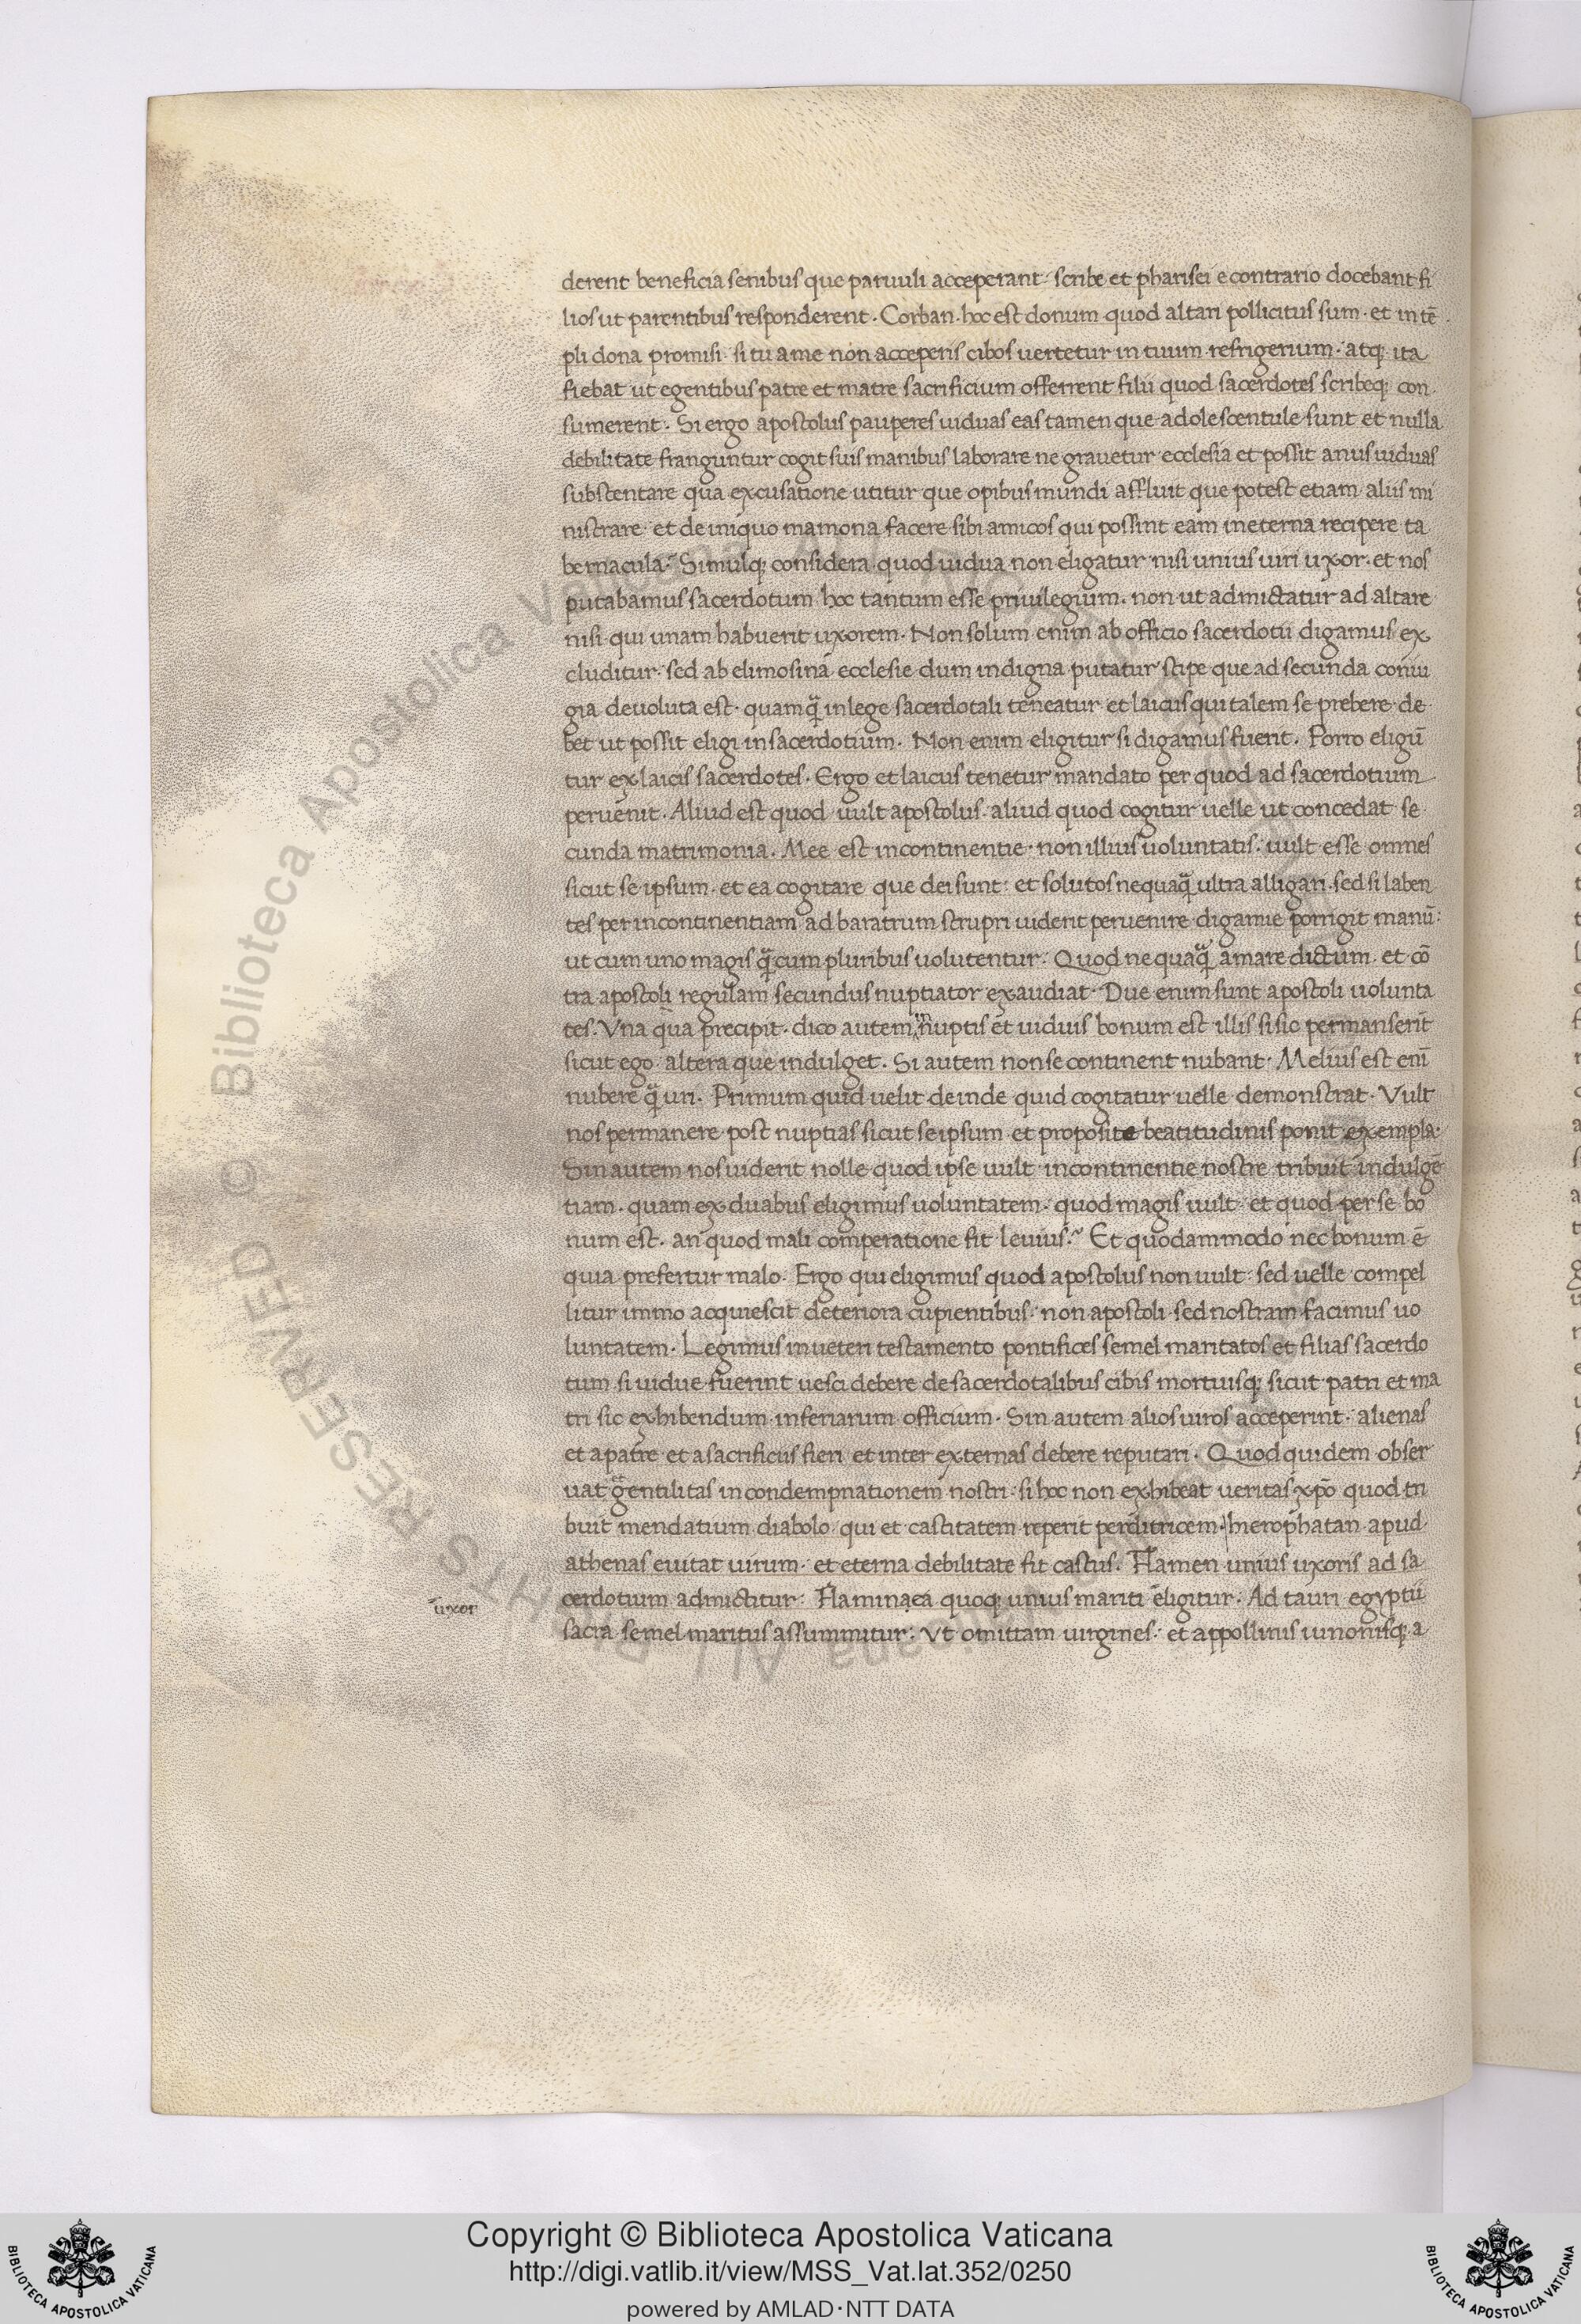 derent beneficia senibus que paruuli acceperant· scribe et pharisei e contrario docebant fi
lios ut parentibus responderent. Corban· hoc est donum quod altari pollicitus sum· et in tē
pli dona promisi· si tu a me non acceperis cibos uertetur in tuum refrigerium· atq; ita
fiebat ut egentibus patre et matre sacrificium offerrent filii quod sacerdotes scribeq; con
sumerent. Si ergo apostolus pauperes uiduas eas tamen que adolescentule sunt et nulla
debilitate franguntur cogit suis manibus laborare ne grauetur ecclesia et possit anus uiduas
substentare qua excusatione utitur que opibus mundi affluit que potest etiam aliis mi
nistrare· et de iniquo mamona facere sibi amicos qui possint eam in eterna recipere ta
bernacula? Simulq; considera quod uidua non eligatur nisi unius uiri uxor· et nos
putabamus sacerdotum hoc tantum esse priuilegium· non ut admictatur ad altare
nisi qui unam habuerit uxorem. Non solum enim ab officio sacerdotii digamus ex
cluditur· sed ab elimosina ecclesie dum indigna putatur stipe que ad secunda coniu
gia deuoluta est· quamq̄ in lege sacerdotali teneatur et laicus qui talem se prebere de
bet ut possit eligi in sacerdotium. Non enim eligitur si digamus fuerit. Porro eligū
tur ex laicis sacerdotes. Ergo et laicus tenetur mandato per quod ad sacerdotium
peruenit. Aliud est quod uult apostolus· aliud quod cogitur uelle ut concedat se
cunda matrimonia. Mee est incontinentie· non illius uoluntatis· uult esse omnes
sicut se ipsum· et ea cogitare que dei sunt: et solutos nequaq̄ ultra alligari· sed si laben
tes per incontinentiam ad baratrum strupri uiderit peruenire digamie porrigit manū:
ut cum uno magis q̄ cum pluribus uolutentur. Quod nequaq̄ amare dictum· et cō
tra apostoli regulam secundus nuptiator exaudiat. Due enim sunt apostoli uolunta
tes. Vna qua precipit· dico autem in nuptis et uiduis bonum est illis si sic permanserīt
sicut ego· altera que indulget. Si autem non se continent nubant· Melius est eni
nubere q̄ uri. Primum quid uelit deinde quid cogitatur uelle demonstrat. Vult
nos permanere post nuptias sicut se ipsum et proposite beatitudinis ponit exempla·
Sin autem nos uiderit nolle quod ipse uult incontinentie nostre tribuit indulgē
tiam· quam ex duabus eligimus uoluntatem· quod magis uult· et quod per se bo
num est· an quod mali comperatione fit leuius? Et quodammodo nec bonum ē
quia prefertur malo. Ergo qui eligimus quod apostolus non uult· sed uelle compel
litur immo acquiescit deteriora cupientibus· non apostoli sed nostram facimus uo
luntatem. Legimus in ueteri testamento pontifices semel maritatos et filias sacerdo
tum si uidue fuerint uesci debere de sacerdotalibus cibis mortuisq; sicut patri et ma
tri sic exhibendum inferiarum officium. Sin autem alios uiros acceperint· alienas
et a patre et a sacrificiis fieri et inter externas debere reputari. Quod quidem obser
uat gentilitas in condempnationem nostri· si hoc non exhibeat ueritas xp̄o quod tri
buit mendatium diabolo· qui et castitatem reperit perditricem· hierophatan apud
athenas euitat uirum· et eterna debilitate fit castus. Flamen unius uxoris ad sa
uxor
cerdotium admictitur. Flaminaca quoq; unius mariti eligitur. Ad tauri egyptii
sacra semel maritus assummitur. Vt omittam uirgines· et appollinis iunonisq; a
Copyright © Biblioteca Apostolica Vaticana
http://digi.vatlib.it/view/MSS_Vat.lat.352/0250
powered by AMLAD·NTT DATA